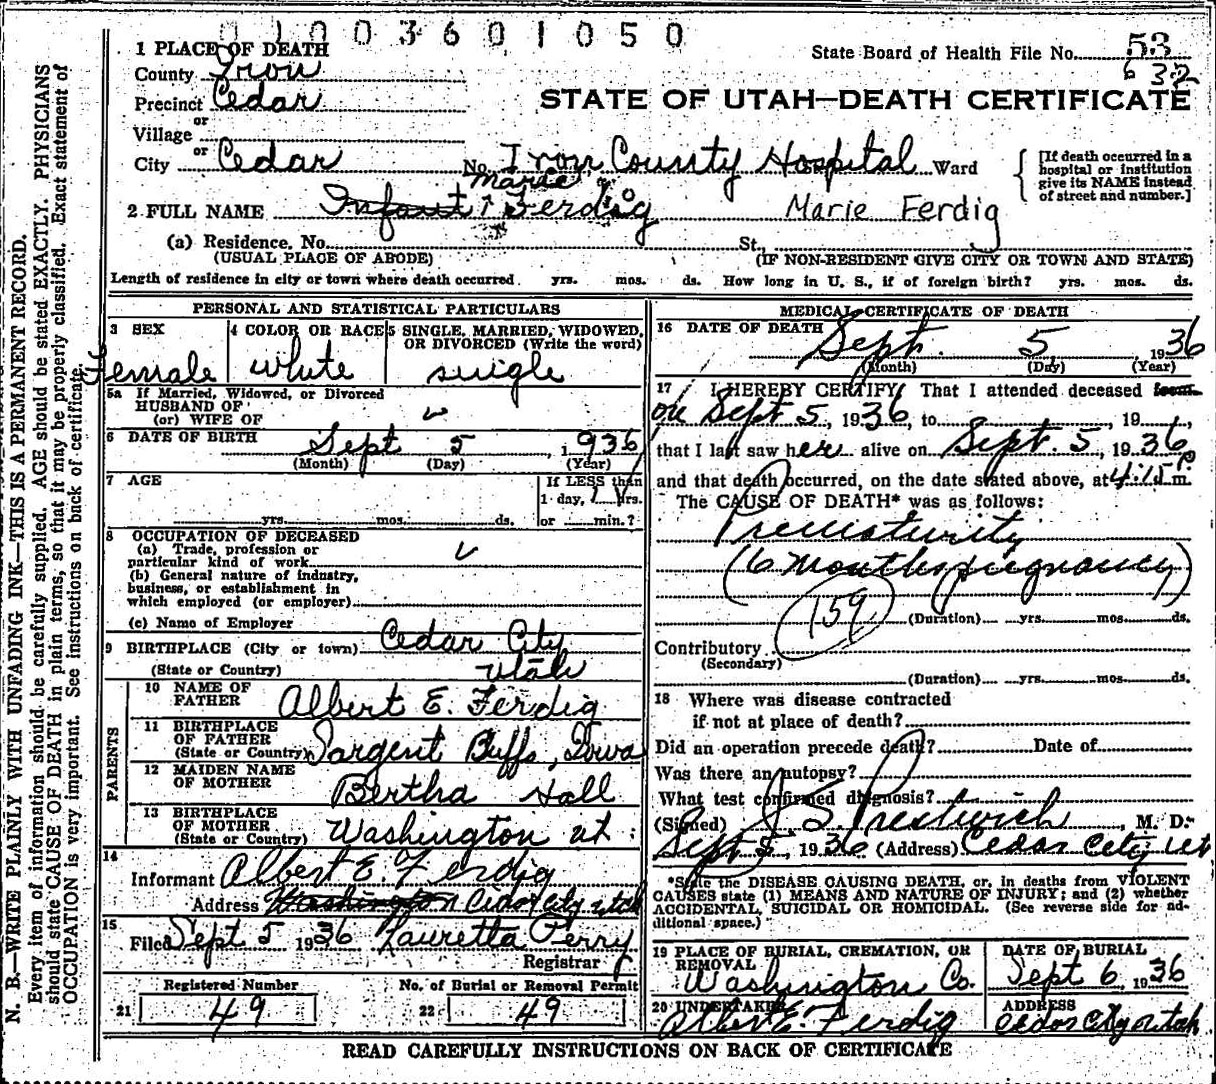 0 1 0 0 3 6 0 1 0 5 0
1 PLACE OF DEATH
State Board of Health File No. 53
632
County Iron
Precinct Cedar
STATE OF UTAH—DEATH CERTIFICATE
or
Village
or
City Cedar No. Iron County Hospital Ward
[If death occurred in a hospital or institution give its NAME instead of street and number.]
Marie
2 FULL NAME Infant Ferdig Marie Ferdig
(a) Residence, No. St.,
(USUAL PLACE OF ABODE) (IF NON-RESIDENT GIVE CITY OR TOWN AND STATE)
Length of residence in city or town where death occurred yrs. mos. ds. How long in U. S., if of foreign birth? yrs. mos. ds.
PERSONAL AND STATISTICAL PARTICULARS
3 SEX 4 COLOR OR RACE 5 SINGLE, MARRIED, WIDOWED,
OR DIVORCED (Write the word)
Female white single
5a If Married, Widowed, or Divorced
HUSBAND OF
(or) WIFE OF
6 DATE OF BIRTH Sept 5, 1936
(Month) (Day) (Year)
7 AGE If LESS than
1 day, 1 hrs.
yrs. mos. ds. or min.?
8 OCCUPATION OF DECEASED
(a) Trade, profession or
particular kind of work
(b) General nature of industry,
business, or establishment in
which employed (or employer)
(c) Name of Employer
9 BIRTHPLACE (City or town) Cedar City
(State or Country) Utah
PARENTS
10 NAME OF
FATHER Albert E. Ferdig
11 BIRTHPLACE
OF FATHER
(State or Country) Sargent Buffs, Iowa
12 MAIDEN NAME
OF MOTHER Bertha Hall
13 BIRTHPLACE
OF MOTHER
(State or Country) Washington ut
14
Informant Albert E. Ferdig
Address Washington Cedar City utah
15
Filed Sept 5 1936 Lauretta Perry
Registrar
Registered Number No. of Burial or Removal Permit
21 49 22 49
MEDICAL CERTIFICATE OF DEATH
16 DATE OF DEATH Sept. 5, 1936
(Month) (Day) (Year)
17 I HEREBY CERTIFY, That I attended deceased from
on Sept 5, 1936, to , 19 ,
that I last saw her alive on Sept. 5, 1936
and that death occurred, on the date stated above, at 4:15 P m.
The CAUSE OF DEATH* was as follows:
Prematurity
(6 months pregnancy)
159
(Duration) yrs. mos. ds.
Contributory
(Secondary)
(Duration) yrs. mos. ds.
18 Where was disease contracted
if not at place of death?
Did an operation precede death? Date of
Was there an autopsy?
What test confirmed diagnosis?
(Signed) J S Prestwich, M. D.
Sept 5, 1936 (Address) Cedar City ut
*State the DISEASE CAUSING DEATH, or, in deaths from VIOLENT
CAUSES state (1) MEANS AND NATURE OF INJURY; and (2) whether
ACCIDENTAL, SUICIDAL OR HOMICIDAL. (See reverse side for ad-
ditional space.)
19 PLACE OF BURIAL, CREMATION, OR
REMOVAL
Washington Co.
DATE OF BURIAL
Sept 6, 1936
20 UNDERTAKER
Albert E. Ferdig
ADDRESS
Cedar City utah
READ CAREFULLY INSTRUCTIONS ON BACK OF CERTIFICATE
N. B.—WRITE PLAINLY WITH UNFADING INK—THIS IS A PERMANENT RECORD.
Every item of information should be carefully supplied. AGE should be stated EXACTLY. PHYSICIANS
should state CAUSE OF DEATH in plain terms, so that it may be properly classified. Exact statement of
OCCUPATION is very important. See instructions on back of certificate.